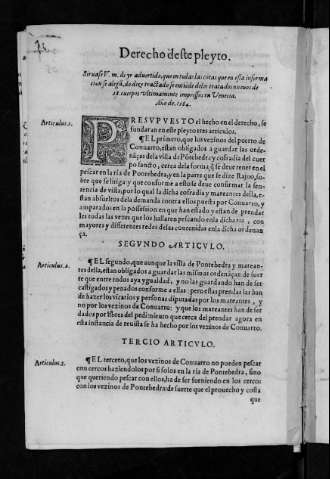 Derecho deste pleyto.
Siruase V. m. de yr aduertido, que en todas las citas que en esta informa
cion se alega, do dize tractado se entiende delos tratados nueuos de
18 cuerpos vltimamente impressos en Venecia.
Año de 1584.
Articulus.1.
PRESVPVESTO el hecho en el derecho, se
fundaran en este pleyto tres articulos.
¶ EL primero, que los vezinos del puerto de
Conuarro, estan obligados a guardar las orde-
nāças dela villa de Pōtebedra y cofradia del cuer
po sancto, cerca dela forma q̄ se deue tener en el
pescar en la ria de Pontebedra, y en la parte que se dize Rajoo, so-
bre que se litiga y que conforme a esto se deue confirmar la sen-
tencia de vista, por lo qual la dicha cofradia y mareantes della, e-
stan absueltos dela demanda contra ellos puesta por Conuarro, y
amparados en la possession en que han estado y estan de prendar
les todas las vezes que los hallaren pescando en la dicha ria, con
mayores y differentes redes delas contenidas en la dicha ordenan
ça.
SEGVNDO ARTICVLO.
Articulus.2.
¶ EL segundo, que aunque la villa de Pontebedra y marean-
tes della, estan obligados a guardar las mismas ordenāças de suer-
te que entre todos aya ygualdad, y no las guardando han de ser
castigados y penados conforme a ellas: pero estas prendas las han
de hazer los vicarios y personas diputadas por los mareantes, y
no por los vezinos de Conuarro: y que los mareantes han de ser
dados por libres del pedimiento que cerca del prendar agora en
esta instancia de reuista se ha hecho por los vezinos de Conuarro.
TERCIO ARTICVLO.
Articulus.3.
¶ EL tercero, que los vezinos de Conuarro no pueden pescar
con cercos haziendolos por si solos en la ria de Pontebedra, sino
que queriendo pescar con ellos, ha de ser forniendo en los cercos
con los vezinos de Pontebedra de suerte que el prouecho y costa
que